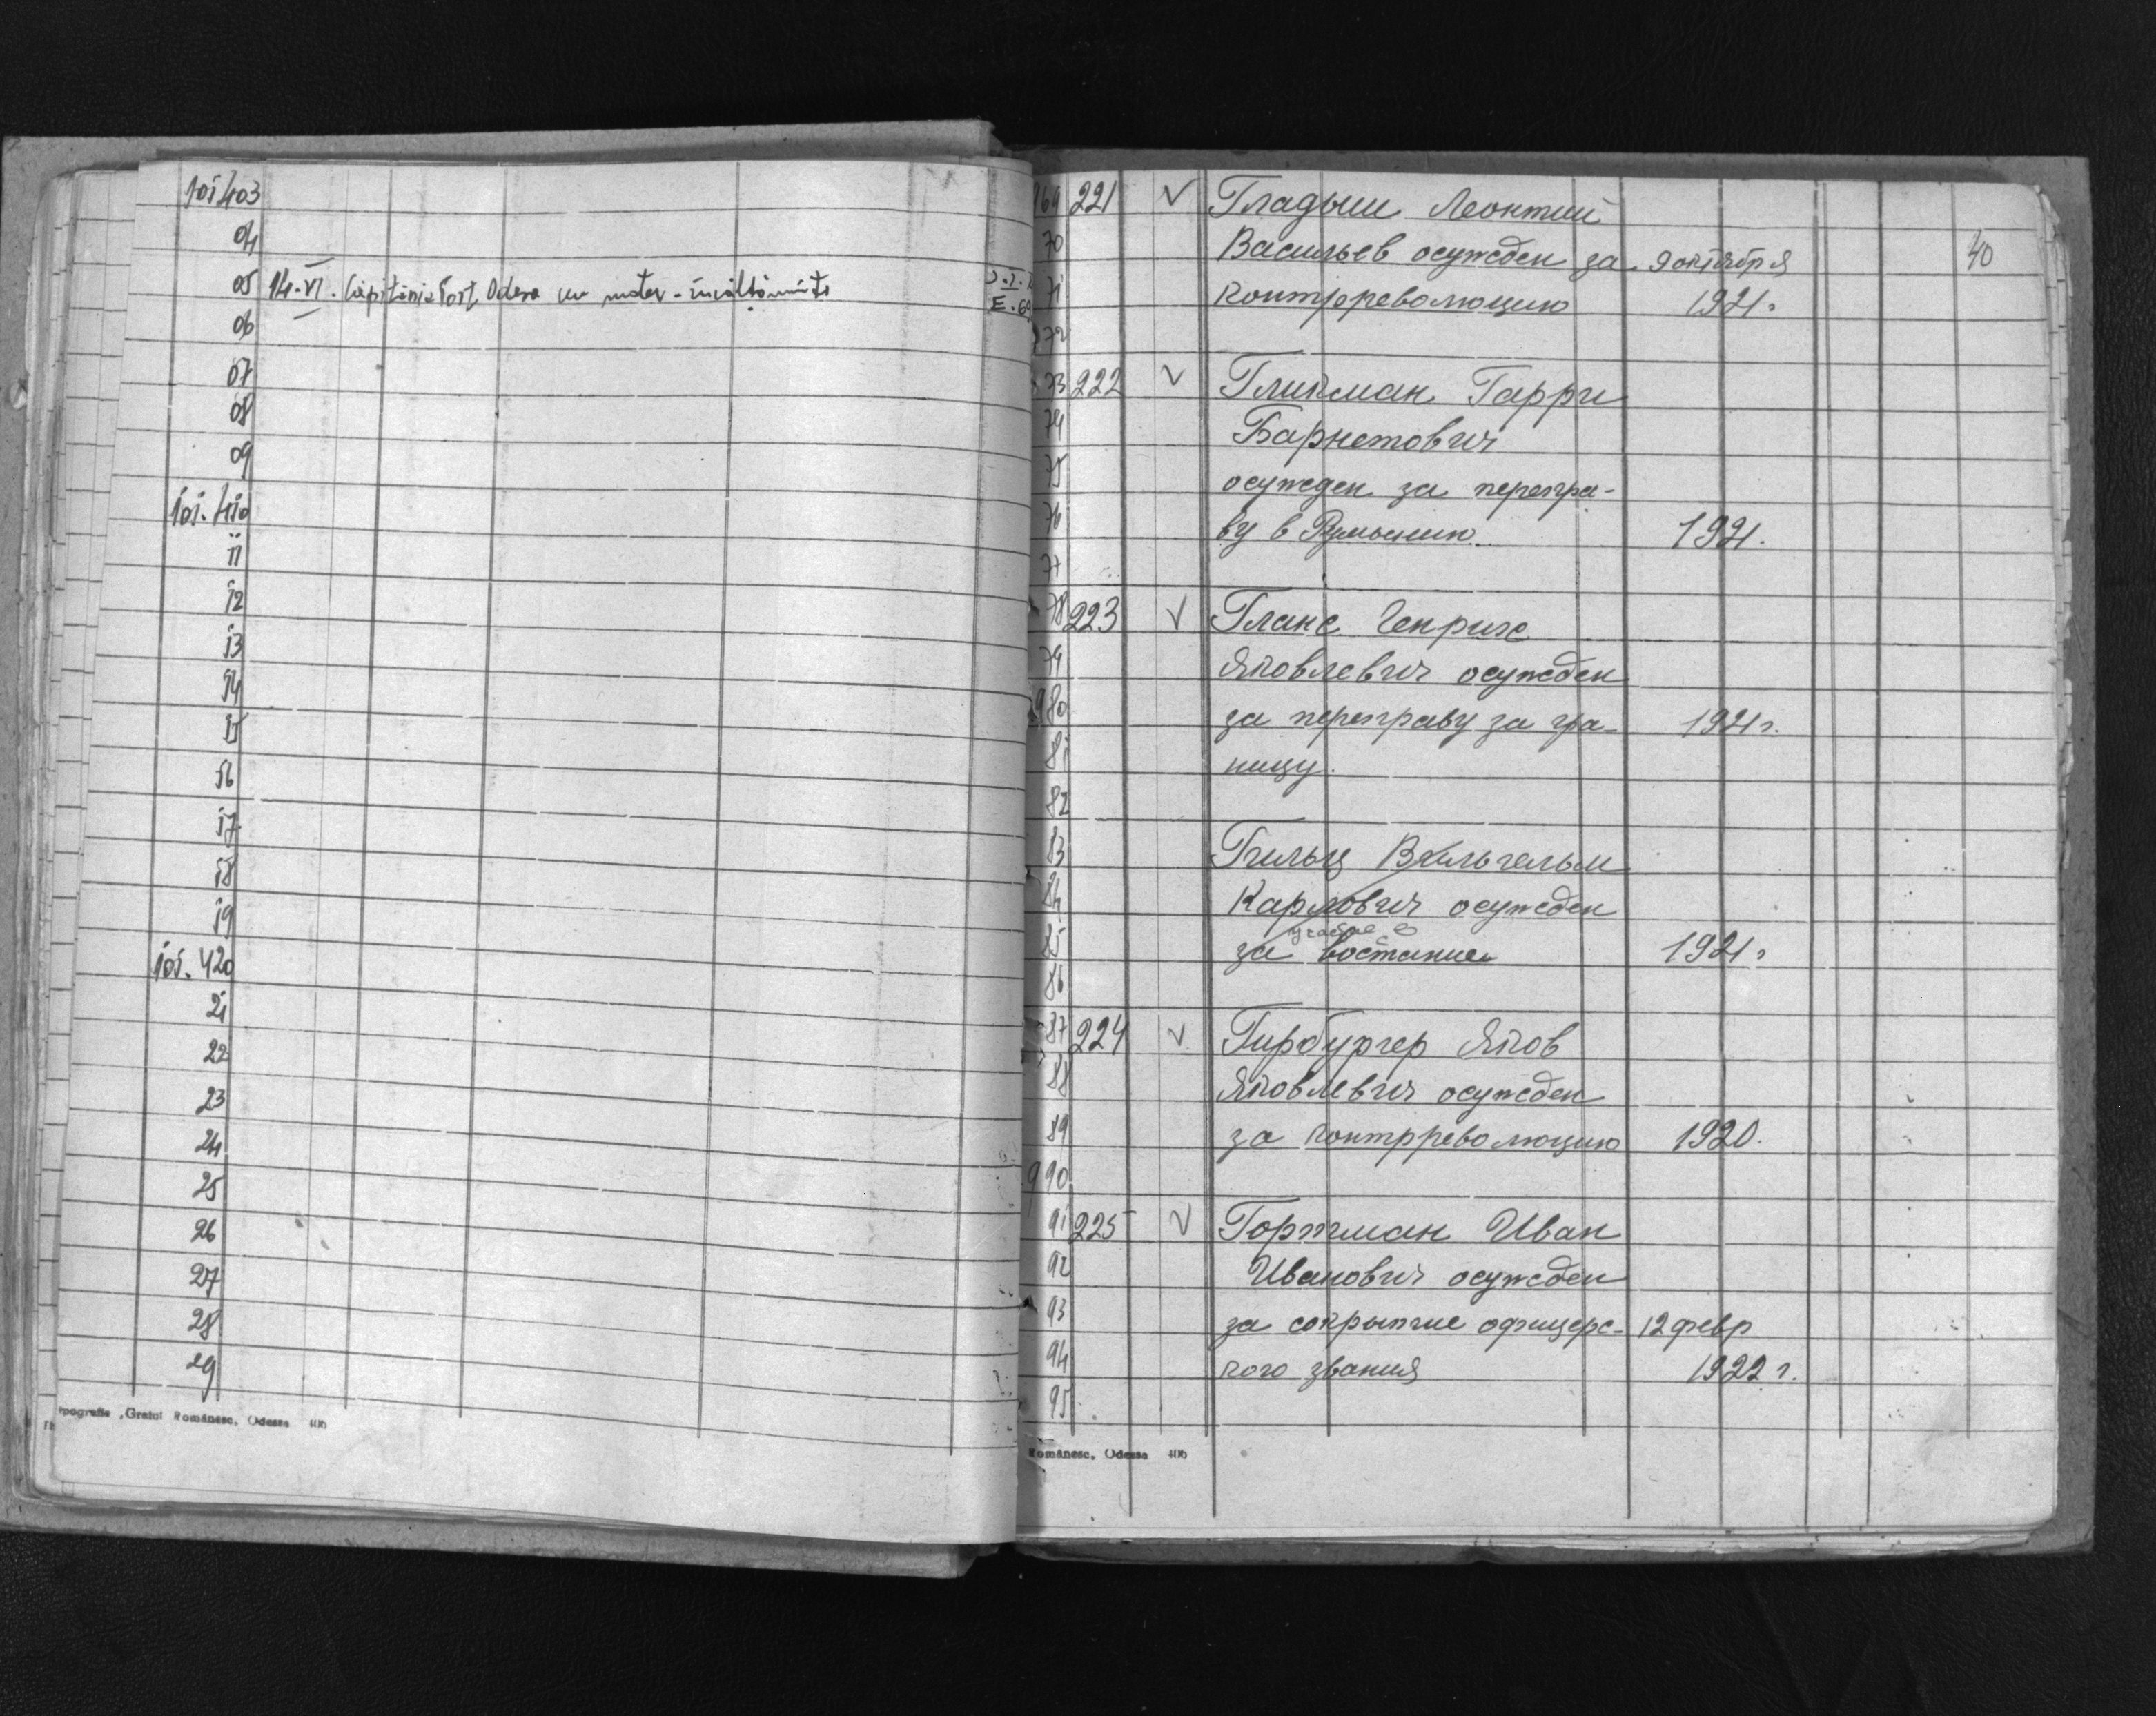 101403
04
05 14-VI. Căpitănia Port Odesa
06
07
08
09
101.410
11
12
13
14
15
16
17
18
19
101.420
21
22
23
24
25
26
27
28
29
pografia „Graiul Românesc, Odessa 406
40
69 221 V Гладыш Леонтий
70 Васильев осужден за 9 октября
71 контрреволюцию 1921г
72
73 222 V Гликман Гарри
74 Барнетович
75 осужден за перепра-
76 ву в Румынию. 1921.
77
78 223 V Гланс Генрих
79 Яковлевич осужден
980 за переправу за гра- 1921г.
81 ницу.
82
83 Гильц Вильгельм
84 Карлович осужден
участие в
85 за востание 1921г
86
87 224 V Гирбургер Яков
88 Яковлевич осужден
89 за контрреволюцию 1920.
990
91 225 V Гортман Иван
92 Иванович осужден
93 за сокрытие офицерс- 12 февр
94 кого звания 1922 г.
95
Românesc, Odessa 406